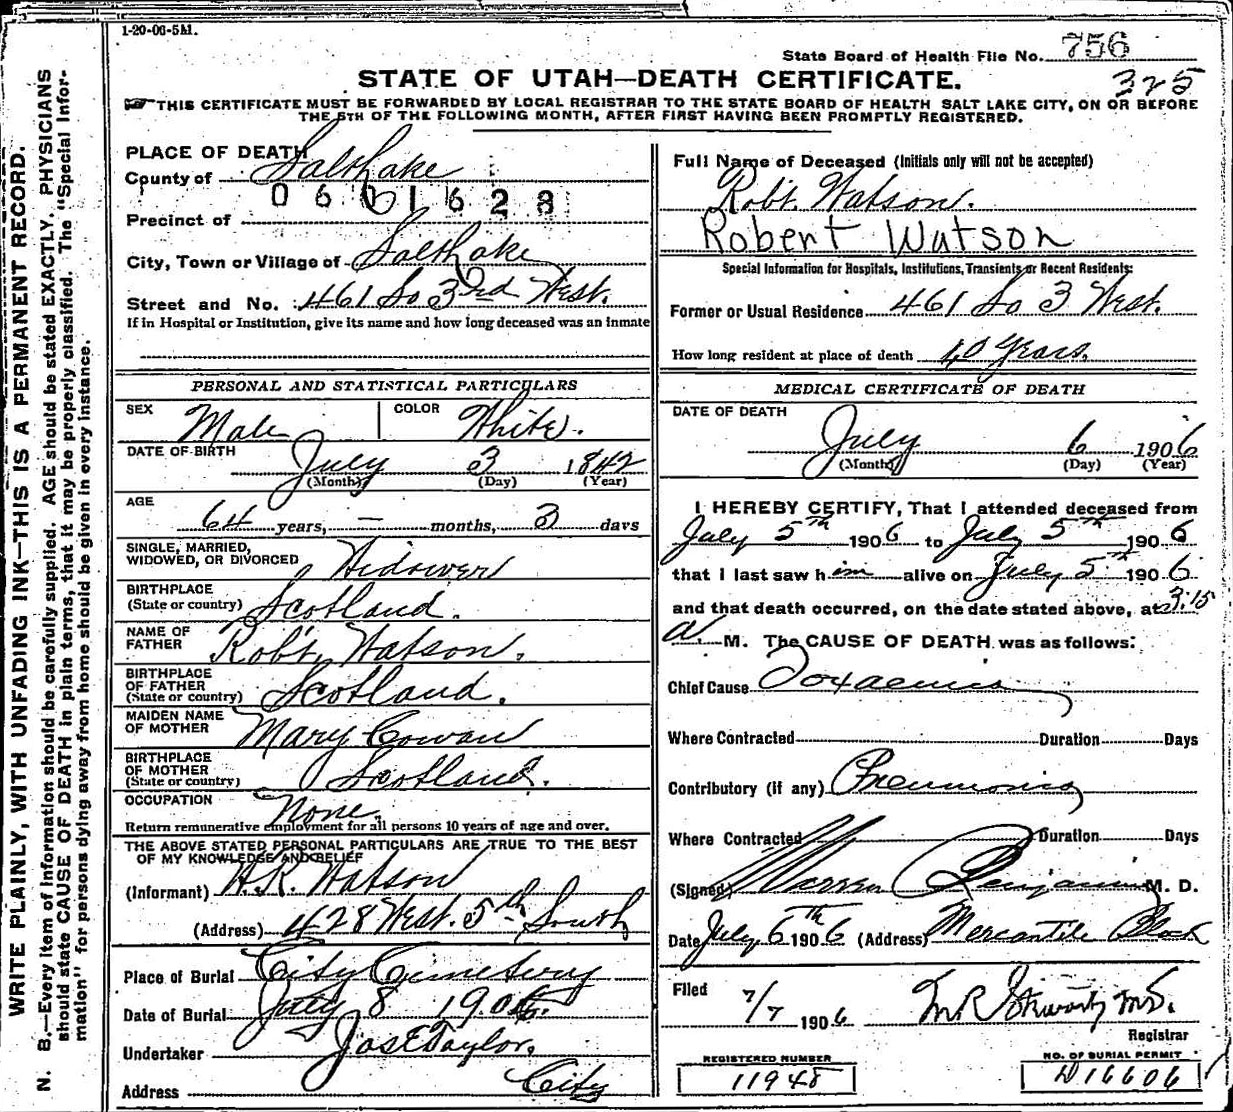 1-20-06-5M.
State Board of Health File No. 756
325
STATE OF UTAH—DEATH CERTIFICATE.
THIS CERTIFICATE MUST BE FORWARDED BY LOCAL REGISTRAR TO THE STATE BOARD OF HEALTH SALT LAKE CITY, ON OR BEFORE
THE 5TH OF THE FOLLOWING MONTH, AFTER FIRST HAVING BEEN PROMPTLY REGISTERED.
WRITE PLAINLY, WITH UNFADING INK—THIS IS A PERMANENT RECORD.
N. B.—Every item of information should be carefully supplied. AGE should be stated EXACTLY. PHYSICIANS
should state CAUSE OF DEATH in plain terms, that it may be properly classified. The "Special Infor-
mation" for persons dying away from home should be given in every instance.
PLACE OF DEATH
County of Salt Lake
0601623
Precinct of
City, Town or Village of Salt Lake
Street and No. 461 So 3rd West.
If in Hospital or Institution, give its name and how long deceased was an inmate
PERSONAL AND STATISTICAL PARTICULARS
SEX Male COLOR White.
DATE OF BIRTH July 3 1842
(Month) (Day) (Year)
AGE
64 years, — months, 3 days
SINGLE, MARRIED,
WIDOWED, OR DIVORCED Widower
BIRTHPLACE
(State or country) Scotland.
NAME OF
FATHER Robt. Watson.
BIRTHPLACE
OF FATHER
(State or country) Scotland.
MAIDEN NAME
OF MOTHER Mary Cowan
BIRTHPLACE
OF MOTHER
(State or country) Scotland.
OCCUPATION None.
Return remunerative employment for all persons 10 years of age and over.
THE ABOVE STATED PERSONAL PARTICULARS ARE TRUE TO THE BEST
OF MY KNOWLEDGE AND BELIEF
(Informant) W.K. Watson
(Address) 428 West. 5th South
Place of Burial City Cemetery
Date of Burial July 8 1906.
Undertaker Jos E Taylor.
Address City
Full Name of Deceased (Initials only will not be accepted)
Robt. Watson.
Robert Watson
Special Information for Hospitals, Institutions, Transients or Recent Residents:
Former or Usual Residence 461 So 3 West.
How long resident at place of death 40 Years.
MEDICAL CERTIFICATE OF DEATH
DATE OF DEATH
July 6 1906
(Month) (Day) (Year)
I HEREBY CERTIFY, That I attended deceased from
July 5th 1906 to July 5th 1906
that I last saw him alive on July 5th 1906.
and that death occurred, on the date stated above, at 3:15
a. M. The CAUSE OF DEATH was as follows:
Chief Cause Toxaemia
Where Contracted Duration Days
Contributory (if any) Pneumonia
Where Contracted Duration Days
(Signed) Warren Benjamin M. D.
Date July 6th 1906 (Address) Mercantile Block
Filed 7/7 1906 M.D.
Registrar
REGISTERED NUMBER
11948
NO. OF BURIAL PERMIT
D16606